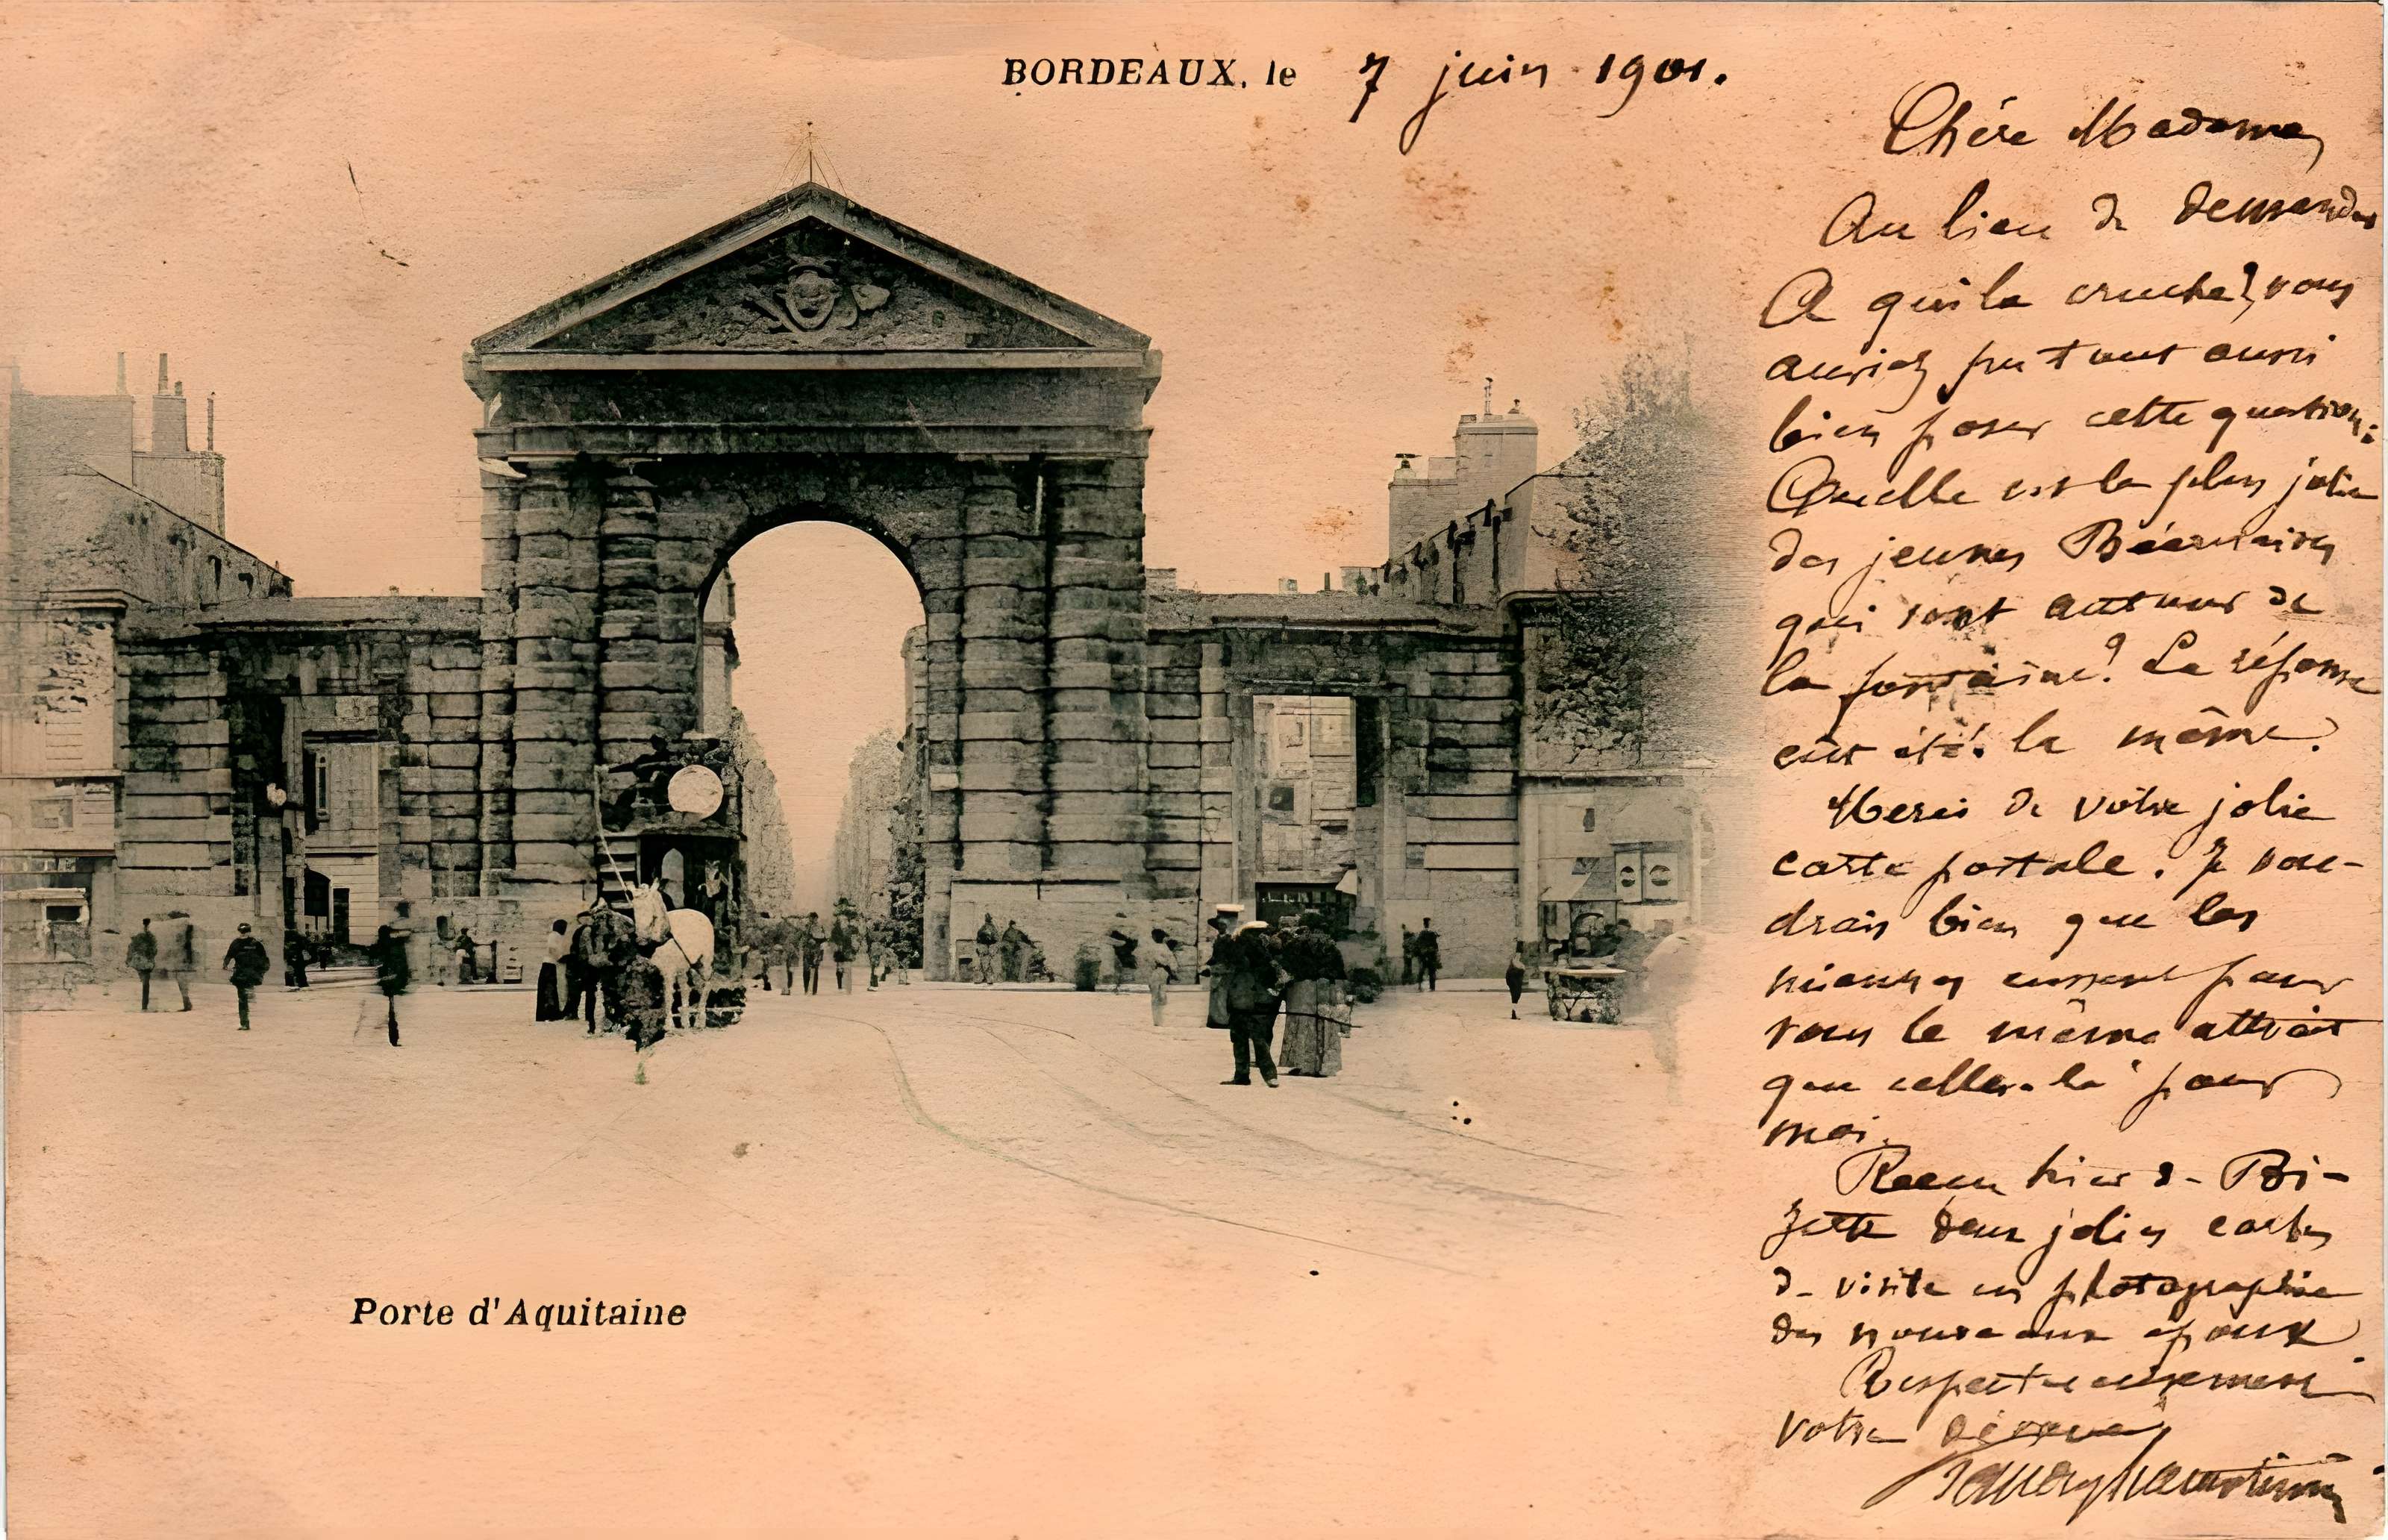 BORDEAUX, le 7 juin 1901.
Chère Madame,
Au lieu de demander
A qui la cruche?, vous
auriez pu tout aussi
bien poser cette question:
Quelle est la plus jolie
des jeunes Béarnaises
qui sont autour de
la fontaine? La réponse
eût été la même.
Merci de votre jolie
carte postale. Je vou-
drais bien que les
miennes eussent pour
vous le même attrait
que celles-là pour
moi.
Reçu hier de Bi-
zette deux jolies cartes
de visite en photographie
des nouveaux époux.
Respectueusement
votre dévoué
Porte d'Aquitaine